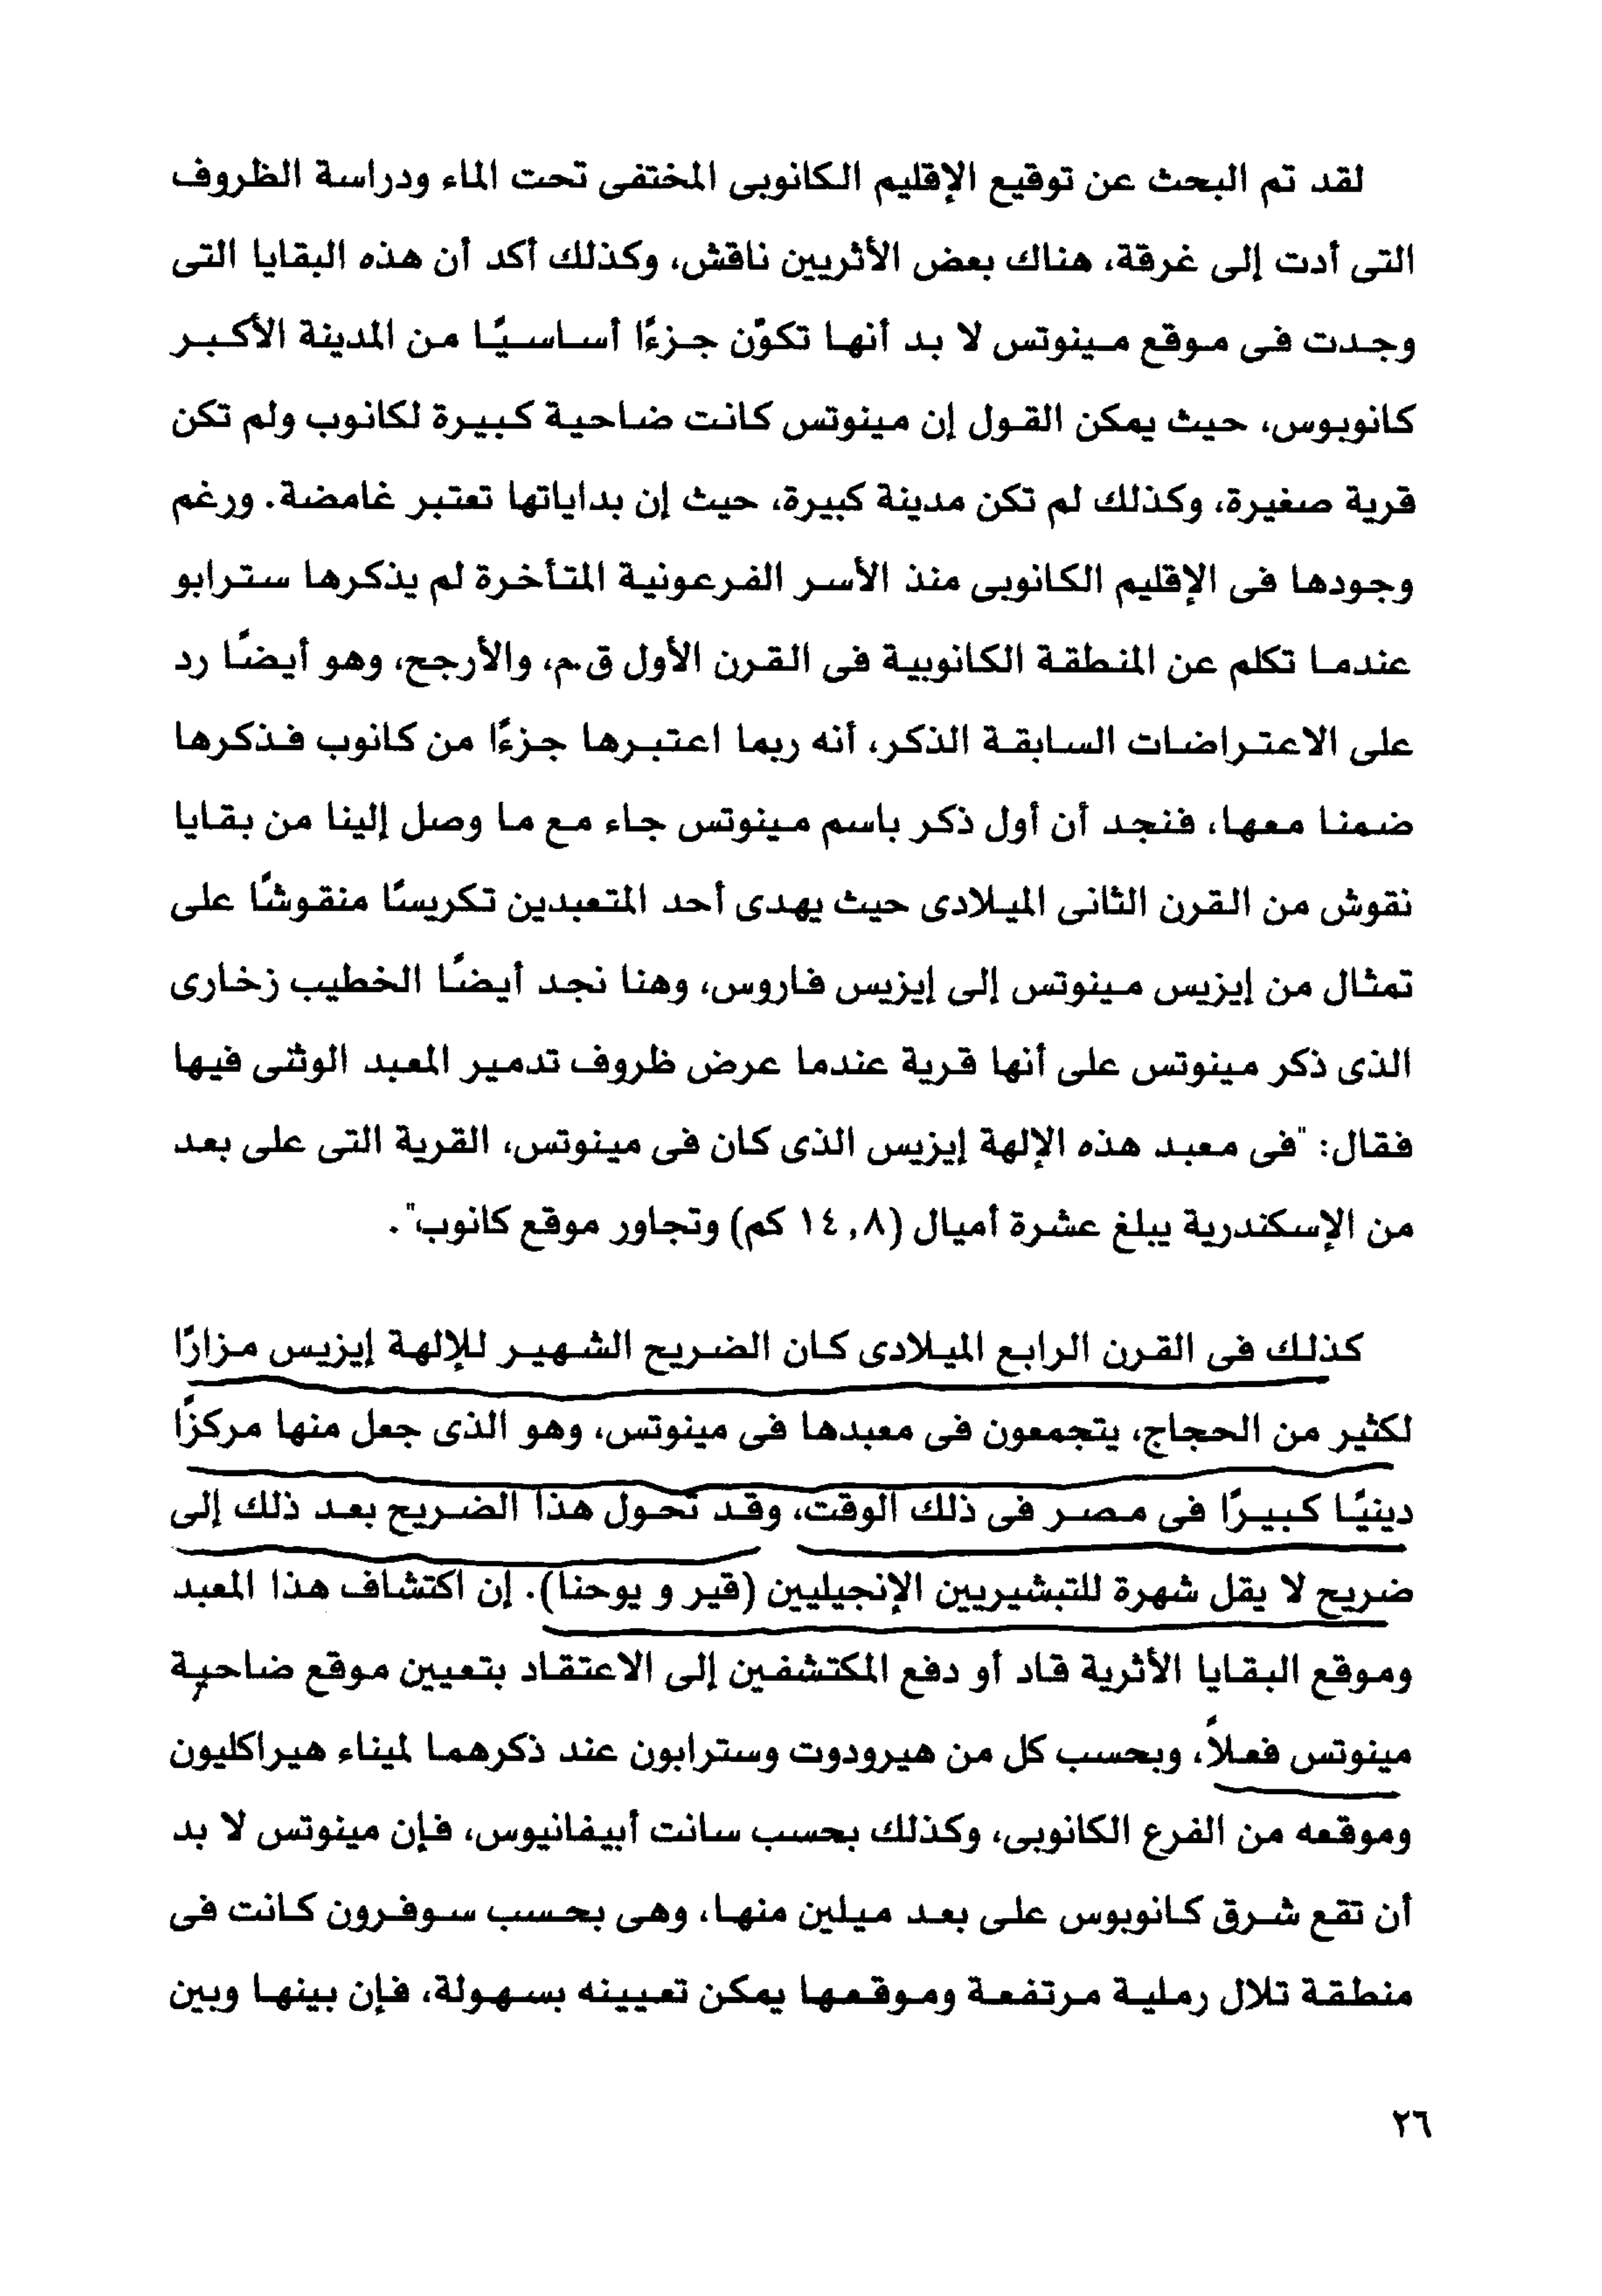 لقد تم البحث عن توقيع الإقليم الكانوبى المختفى تحت الماء ودراسة الظروف
التى أدت إلى غرقة، هناك بعض الأثريين ناقش، وكذلك أكد أن هذه البقايا التى
وجدت فى موقع مينوتس لا بد أنها تكوّن جزءًا أساسيًا من المدينة الأكبر
كانوبوس، حيث يمكن القول إن مينوتس كانت ضاحية كبيرة لكانوب ولم تكن
قرية صغيرة، وكذلك لم تكن مدينة كبيرة، حيث إن بداياتها تعتبر غامضة. ورغم
وجودها فى الإقليم الكانوبى منذ الأسر الفرعونية المتأخرة لم يذكرها سترابو
عندما تكلم عن المنطقة الكانوبية فى القرن الأول ق.م، والأرجح، وهو أيضًا رد
على الاعتراضات السابقة الذكر، أنه ربما اعتبرها جزءًا من كانوب فذكرها
ضمنا معها، فنجد أن أول ذكر باسم مينوتس جاء مع ما وصل إلينا من بقايا
نقوش من القرن الثانى الميلادى حيث يهدى أحد المتعبدين تكريسًا منقوشًا على
تمثال من إيزيس مينوتس إلى إيزيس فاروس، وهنا نجد أيضًا الخطيب زخارى
الذى ذكر مينوتس على أنها قرية عندما عرض ظروف تدمير المعبد الوثنى فيها
فقال: "فى معبد هذه الإلهة إيزيس الذى كان فى مينوتس، القرية التى على بعد
من الإسكندرية يبلغ عشرة أميال (١٤,٨ كم) وتجاور موقع كانوب".
كذلك فى القرن الرابع الميلادى كان الضريح الشهير للإلهة إيزيس مزارًا
لكثير من الحجاج، يتجمعون فى معبدها فى مينوتس، وهو الذى جعل منها مركزًا
دينيًا كبيرًا فى مصر فى ذلك الوقت، وقد تحول هذا الضريح بعد ذلك إلى
ضريح لا يقل شهرة للتبشيريين الإنجيليين (قير و يوحنا). إن اكتشاف هذا المعبد
وموقع البقايا الأثرية قاد أو دفع المكتشفين إلى الاعتقاد بتعيين موقع ضاحية
مينوتس فعلاً، وبحسب كل من هيرودوت وسترابون عند ذكرهما لميناء هيراكليون
وموقعه من الفرع الكانوبى، وكذلك بحسب سانت أبيفانيوس، فإن مينوتس لا بد
أن تقع شرق كانوبوس على بعد ميلين منها، وهى بحسب سوفرون كانت فى
منطقة تلال رملية مرتفعة وموقعها يمكن تعيينه بسهولة، فإن بينها وبين
٢٦